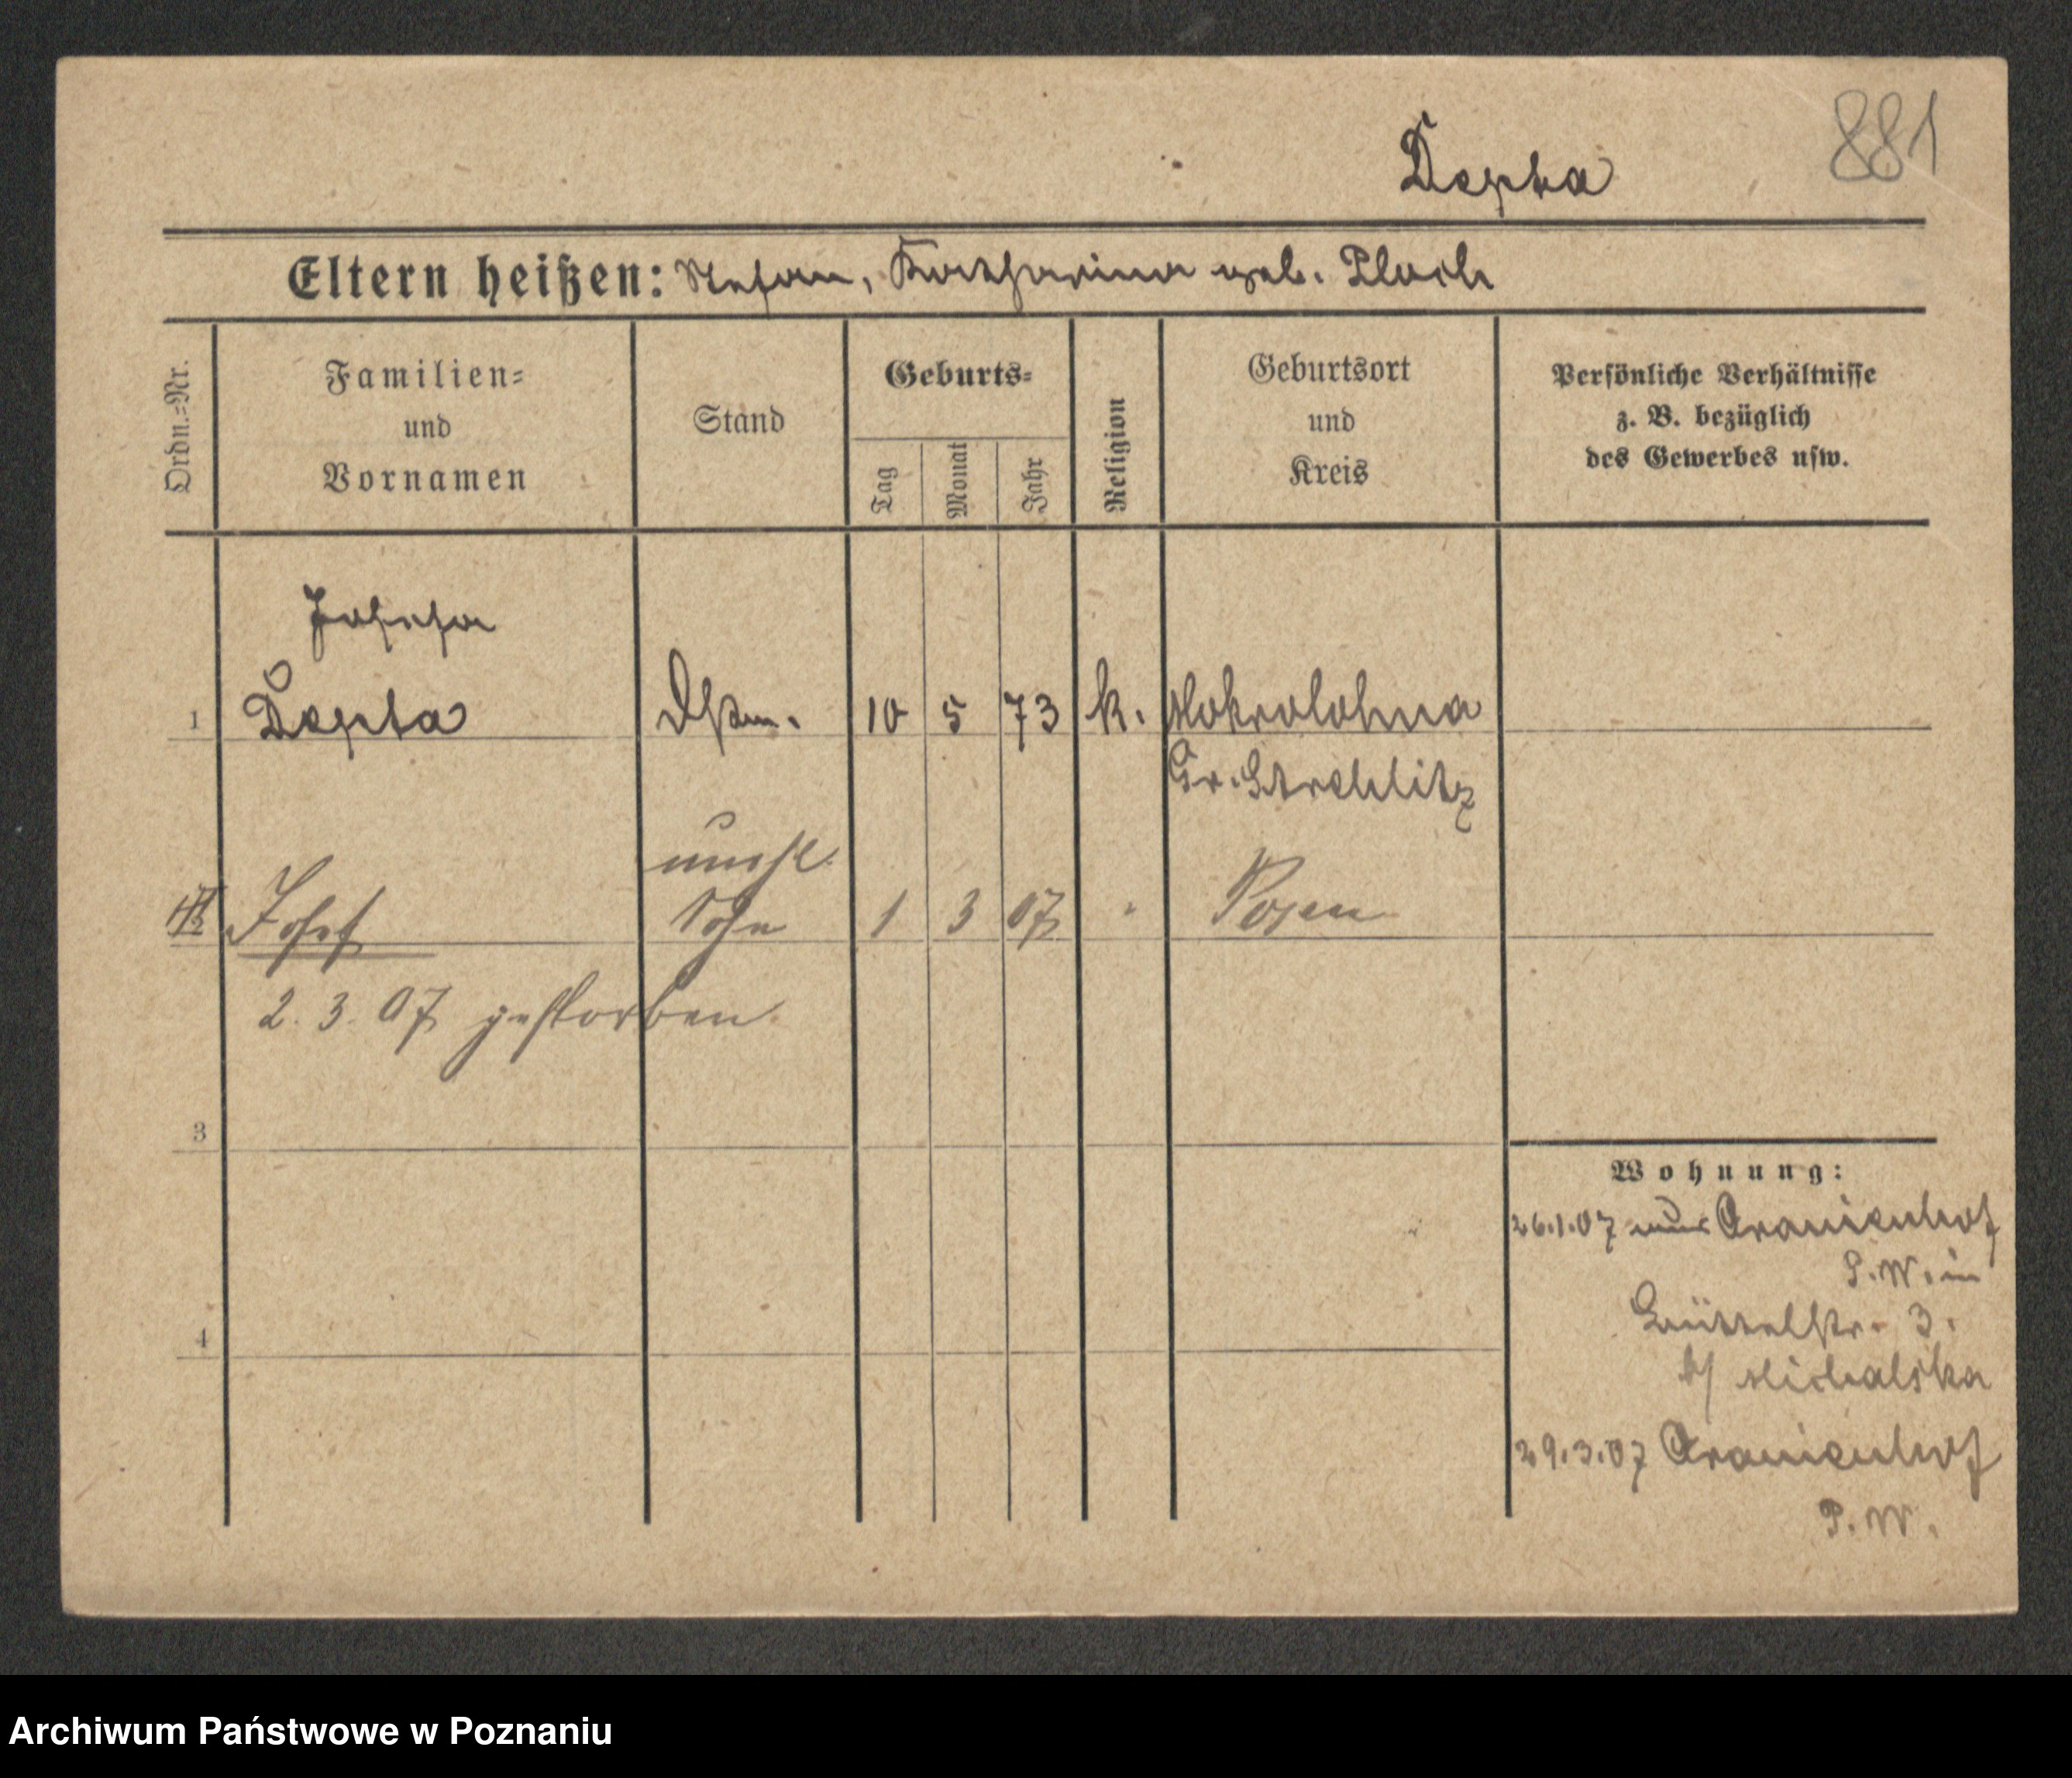 881
Depta
Eltern heißen: Stefan, Katharina geb. Ploch
Ordn.=Nr.
Familien=
und
Vornamen
Stand
Geburts=
Tag
Monat
Jahr
Religion
Geburtsort
und
Kreis
Persönliche Verhältnisse
z. B. bezüglich
des Gewerbes usw.
Josefa
1 Depta 10 5 73 k. Mokrolohna
Gr. Strehlitz
unehl.
Josef Sohn 1 3 07 Posen
2. 3. 07 gestorben
3
Wohnung:
26.1.07 aus Oranienhof
P.W. in
Büttelstr. 3.
4
b/ Michalska
29.3.07 Oranienhof
P.W.
Archiwum Państwowe w Poznaniu